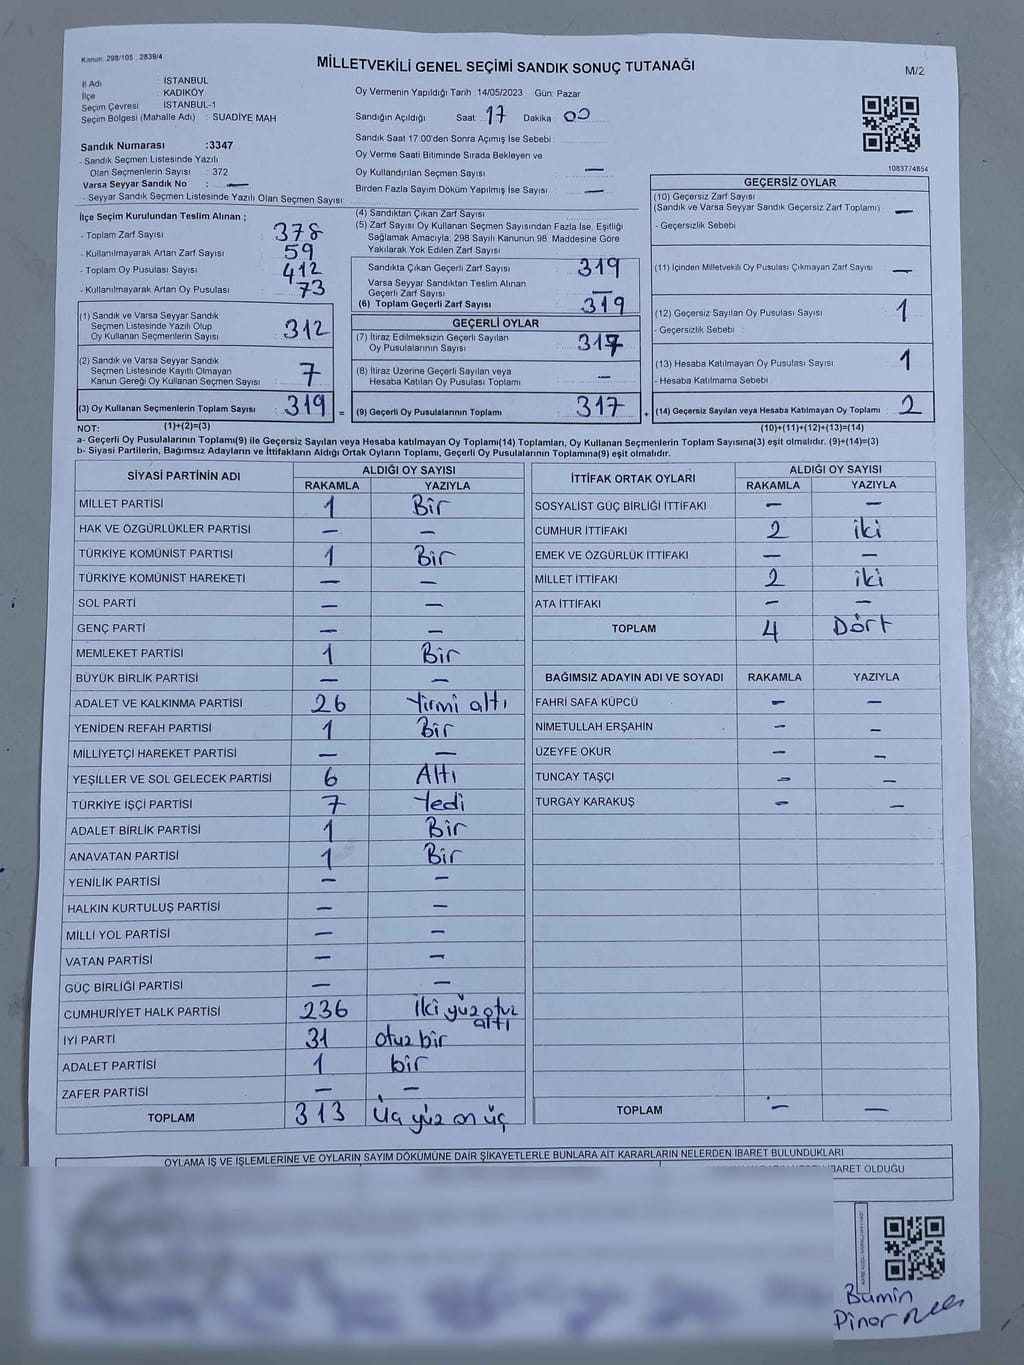 Kanun: 298/105 . 2839/4
MİLLETVEKİLİ GENEL SEÇİMİ SANDIK SONUÇ TUTANAĞI
M/2
İl Adı : İSTANBUL
İlçe : KADIKÖY
Seçim Çevresi : İSTANBUL-1
Seçim Bölgesi (Mahalle Adı) : SUADİYE MAH
Oy Vermenin Yapıldığı Tarih :14/05/2023 Gün: Pazar
Sandığın Açıldığı Saat: 17 Dakika : 00
Sandık Saat 17:00'den Sonra Açımış İse Sebebi :
Oy Verme Saati Bitiminde Sırada Bekleyen ve
Oy Kullandırılan Seçmen Sayısı : —
Birden Fazla Sayım Döküm Yapılmış İse Sayısı : —
1083774854
Sandık Numarası :3347
- Sandık Seçmen Listesinde Yazılı
Olan Seçmenlerin Sayısı : 372
Varsa Seyyar Sandık No : —
- Seyyar Sandık Seçmen Listesinde Yazılı Olan Seçmen Sayısı:
İlçe Seçim Kurulundan Teslim Alınan ;
- Toplam Zarf Sayısı : 378
- Kullanılmayarak Artan Zarf Sayısı : 59
- Toplam Oy Pusulası Sayısı : 412
- Kullanılmayarak Artan Oy Pusulası : 73
(1) Sandık ve Varsa Seyyar Sandık
Seçmen Listesinde Yazılı Olup
Oy Kullanan Seçmenlerin Sayısı : 312
(2) Sandık ve Varsa Seyyar Sandık
Seçmen Listesinde Kayıtlı Olmayan
Kanun Gereği Oy Kullanan Seçmen Sayısı : 7
(3) Oy Kullanan Seçmenlerin Toplam Sayısı : 319 =
(1)+(2)=(3)
(4) Sandıktan Çıkan Zarf Sayısı :
(5) Zarf Sayısı Oy Kullanan Seçmen Sayısından Fazla İse, Eşitliği
Sağlamak Amacıyla, 298 Sayılı Kanunun 98. Maddesine Göre
Yakılarak Yok Edilen Zarf Sayısı :
Sandıkta Çıkan Geçerli Zarf Sayısı : 319
Varsa Seyyar Sandıktan Teslim Alınan
Geçerli Zarf Sayısı : —
(6) Toplam Geçerli Zarf Sayısı : 319
GEÇERLİ OYLAR
(7) İtiraz Edilmeksizin Geçerli Sayılan
Oy Pusulalarının Sayısı : 317
(8) İtiraz Üzerine Geçerli Sayılan veya
Hesaba Katılan Oy Pusulası Toplamı : —
(9) Geçerli Oy Pusulalarının Toplamı : 317 +
GEÇERSİZ OYLAR
(10) Geçersiz Zarf Sayısı
(Sandık ve Varsa Seyyar Sandık Geçersiz Zarf Toplamı) : —
- Geçersizlik Sebebi :
(11) İçinden Milletvekili Oy Pusulası Çıkmayan Zarf Sayısı : —
(12) Geçersiz Sayılan Oy Pusulası Sayısı : 1
- Geçersizlik Sebebi :
(13) Hesaba Katılmayan Oy Pusulası Sayısı : 1
- Hesaba Katılmama Sebebi :
(14) Geçersiz Sayılan veya Hesaba Katılmayan Oy Toplamı : 2
(10)+(11)+(12)+(13)=(14)
NOT:
a- Geçerli Oy Pusulalarının Toplamı(9) ile Geçersiz Sayılan veya Hesaba katılmayan Oy Toplamı(14) Toplamları, Oy Kullanan Seçmenlerin Toplam Sayısına(3) eşit olmalıdır. (9)+(14)=(3)
b- Siyasi Partilerin, Bağımsız Adayların ve İttifakların Aldığı Ortak Oyların Toplamı, Geçerli Oy Pusulalarının Toplamına(9) eşit olmalıdır.
SİYASİ PARTİNİN ADI ALDIĞI OY SAYISI
RAKAMLA YAZIYLA
MİLLET PARTİSİ 1 Bir
HAK VE ÖZGÜRLÜKLER PARTİSİ — —
TÜRKİYE KOMÜNİST PARTİSİ 1 Bir
TÜRKİYE KOMÜNİST HAREKETİ — —
SOL PARTİ — —
GENÇ PARTİ — —
MEMLEKET PARTİSİ 1 Bir
BÜYÜK BİRLİK PARTİSİ — —
ADALET VE KALKINMA PARTİSİ 26 Yirmi altı
YENİDEN REFAH PARTİSİ 1 Bir
MİLLİYETÇİ HAREKET PARTİSİ — —
YEŞİLLER VE SOL GELECEK PARTİSİ 6 Altı
TÜRKİYE İŞÇİ PARTİSİ 7 Yedi
ADALET BİRLİK PARTİSİ 1 Bir
ANAVATAN PARTİSİ 1 Bir
YENİLİK PARTİSİ — —
HALKIN KURTULUŞ PARTİSİ — —
MİLLİ YOL PARTİSİ — —
VATAN PARTİSİ — —
GÜÇ BİRLİĞİ PARTİSİ — —
CUMHURİYET HALK PARTİSİ 236 İki yüz otuz
altı
İYİ PARTİ 31 otuz bir
ADALET PARTİSİ 1 bir
ZAFER PARTİSİ — —
TOPLAM 313 Üç yüz on üç
İTTİFAK ORTAK OYLARI ALDIĞI OY SAYISI
RAKAMLA YAZIYLA
SOSYALIST GÜÇ BİRLİĞİ İTTİFAKI — —
CUMHUR İTTİFAKI 2 iki
EMEK VE ÖZGÜRLÜK İTTİFAKI — —
MİLLET İTTİFAKI 2 iki
ATA İTTİFAKI — —
TOPLAM 4 Dört
BAĞIMSIZ ADAYIN ADI VE SOYADI RAKAMLA YAZIYLA
FAHRİ SAFA KÜPCÜ — —
NİMETULLAH ERŞAHİN — —
ÜZEYFE OKUR — —
TUNCAY TAŞÇI — —
TURGAY KARAKUŞ — —
TOPLAM — —
OYLAMA İŞ VE İŞLEMLERİNE VE OYLARIN SAYIM DÖKÜMÜNE DAİR ŞİKAYETLERLE BUNLARA AİT KARARLARIN NELERDEN İBARET BULUNDUKLARI
İBARET OLDUĞU
Bumin
Pınar